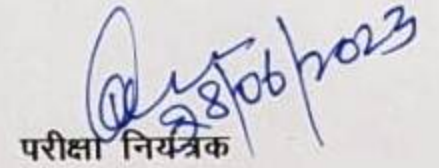 28/06/2023
परीक्षा नियंत्रक